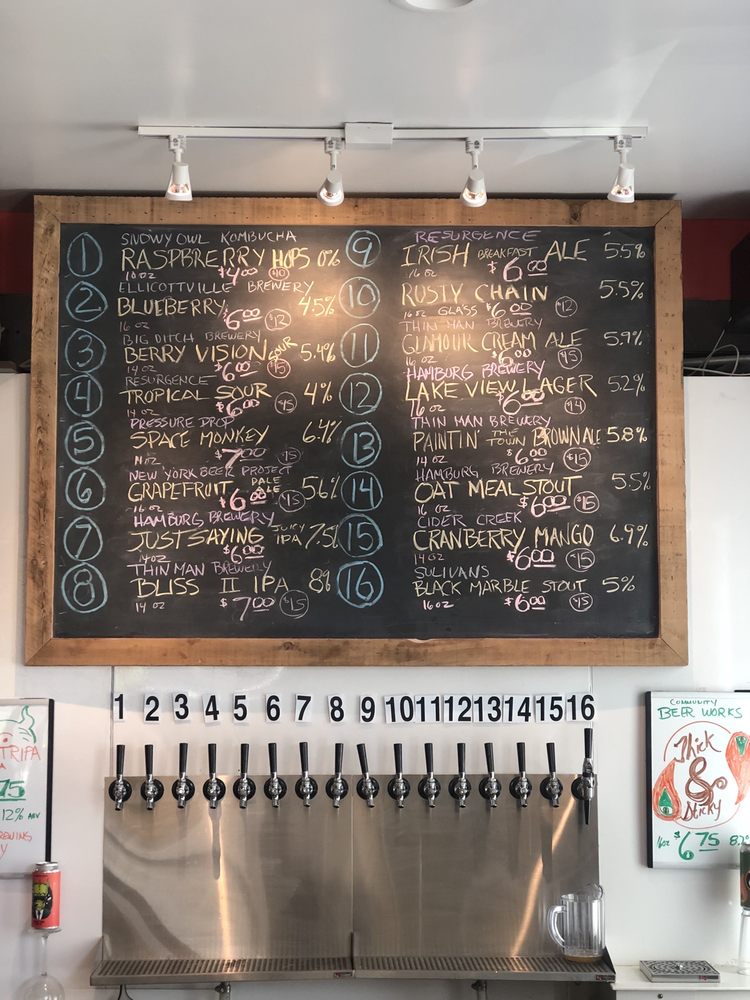 1 SNOWY OWL KOMBUCHA
RASPBRERRY HOPS 0%
10 OZ $4.00 $10
2 ELLICOTTVILLE BREWERY
BLUEBERRY 4.5%
16 OZ $6.00 $12
3 BIG DITCH BREWERY
BERRY VISION SOUR 5.4%
14 OZ $6.00 $15
4 RESURGENCE
TROPICAL SOUR 4%
14 OZ $6.00 $15
5 PRESSURE DROP
SPACE MONKEY 6.4%
14 OZ $7.00 $15
6 NEW YORK BEER PROJECT
GRAPEFRUIT PALE ALE 5.6%
16 OZ $6.00 $15
7 HAMBURG BREWERY
JUST SAYING JUICY IPA 7.5%
14 OZ $6.00
8 THIN MAN BREWERY
BLISS II IPA 8%
14 OZ $7.00 $15
9 RESURGENCE
IRISH BREAKFAST ALE 5.5%
16 OZ $6.00
10 RUSTY CHAIN 5.5%
16 OZ GLASS $6.00 $12
11 THIN MAN BREWERY
GLAMOUR CREAM ALE 5.9%
16 OZ $6.00 $15
12 HAMBURG BREWERY
LAKE VIEW LAGER 5.2%
16 OZ $6.00 $14
13 THIN MAN BREWERY
PAINTIN THE TOWN BROWN ALE 5.8%
14 OZ $6.00 $15
14 HAMBURG BREWERY
OAT MEAL STOUT 5.5%
16 OZ $6.00 $15
15 CIDER CREEK
CRANBERRY MANGO 6.9%
14 OZ $6.00 $15
16 SULIVANS
BLACK MARBLE STOUT 5%
16 OZ $6.00 $15
1 2 3 4 5 6 7 8 9 10 11 12 13 14 15 16
TRIPA
75
12% ABV
COMMUNITY
BEER WORKS
Thick
&
Sticky
16oz $6.75